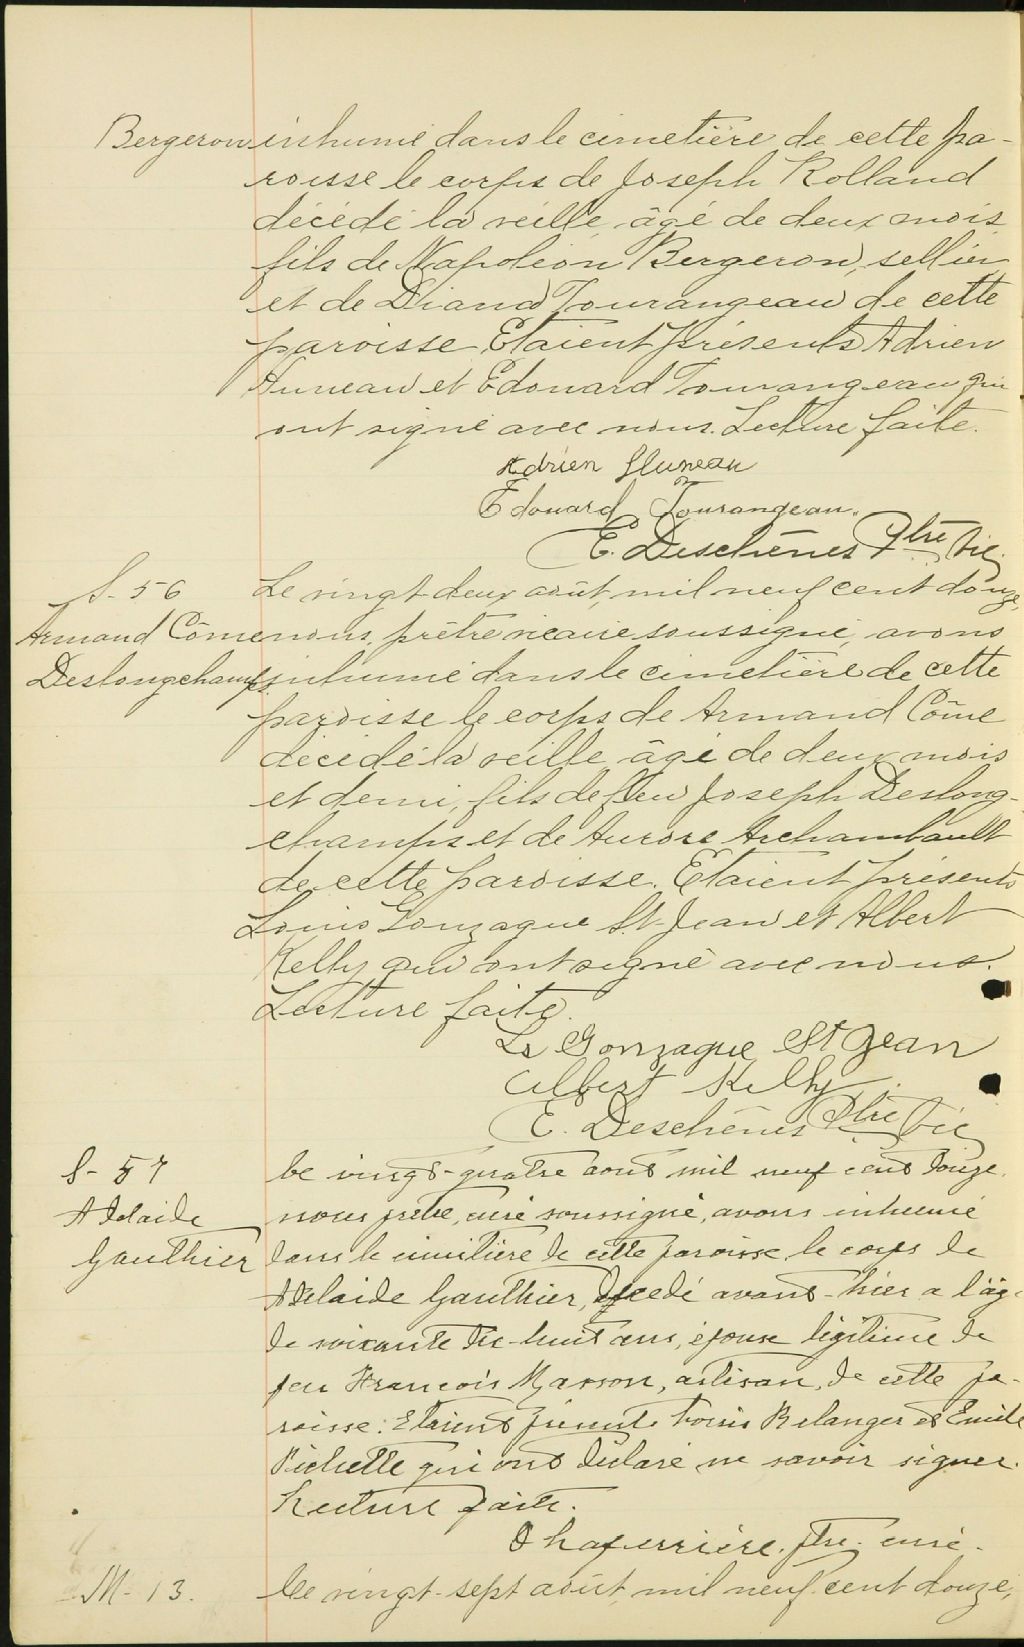 Bergeron inhumé dans le cimetière de cette pa-
roisse le corps de Joseph Rolland
décédé la veille âgé de deux mois
fils de Napoléon Bergeron, sellier
et de Diana Tourangeau de cette
paroisse. Etaient présents Adrien
Huneau et Edouard Tourangeau qui
ont signé avec nous. Lecture faite.
Adrien Huneau
Edouard Tourangeau.
E. Deschênes Ptre Vic.
S-56 Le vingt-deux août, mil neuf cent douze,
Armand Côme nous, prêtre vicaire soussigné, avons
Deslongchamps inhumé dans le cimetière de cette
paroisse le corps de Armand Côme
décédé la veille âgé de deux mois
et demi, fils de feu Joseph Deslong-
champs et de Aurore Archambault
de cette paroisse. Etaient présents
Louis Gonzague St-Jean et Albert
Kelly qui ont signé avec nous.
Lecture faite.
Ls Gonzague St Jean
Albert Kelly
E. Deschênes Ptre Vic
S-57 Le vingt-quatre aout mil neuf cent douze
Adelaide nous prêtre, curé soussigné, avons inhumé
Gauthier dans le cimetière de cette paroisse le corps de
Adelaide Gauthier, décedé avant-hier a l'âge
de soixante dix-huit ans, épouse légitime de
feu Francois Masson, artisan, de cette pa-
roisse. Etaient présents Louis Belanger et Emile
Pichette qui ont déclaré ne savoir signer.
Lecture faite.
Laferrière. ptre. curé.
M-13. Le vingt-sept août, mil neuf cent douze,